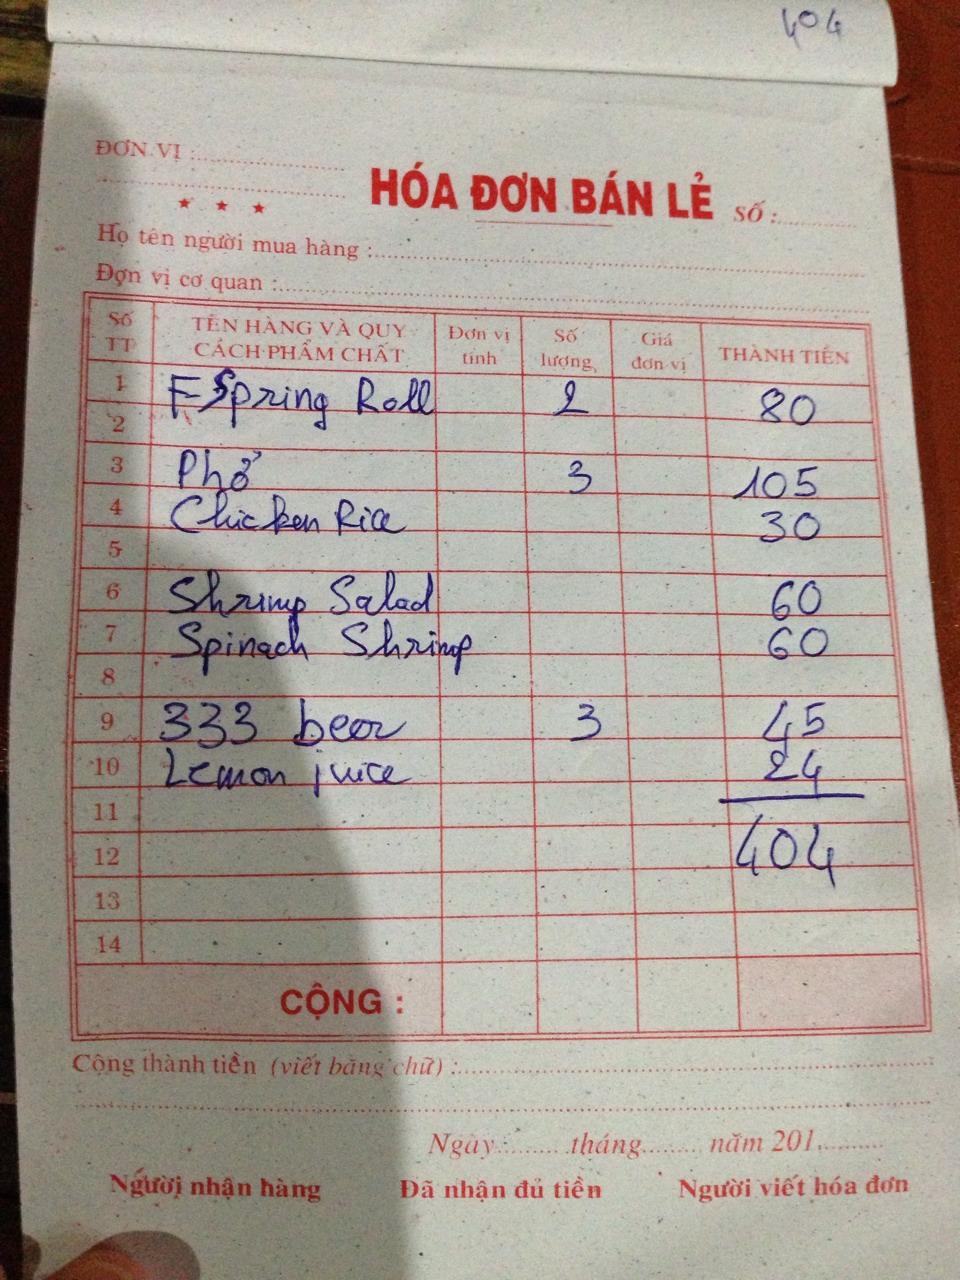 404
ĐƠN VỊ :
★ ★ ★
HÓA ĐƠN BÁN LẺ SỐ :
Họ tên người mua hàng :
Đơn vị cơ quan :
Số TT TÊN HÀNG VÀ QUY CÁCH PHẨM CHẤT Đơn vị tính Số lượng Giá đơn vị THÀNH TIỀN
1 F Spring Roll 2 80
2
3 Phở 3 105
4 Chicken Rice 30
5
6 Shrimp Salad 60
7 Spinach Shrimp 60
8
9 333 beer 3 45
10 Lemon juice 24
11
12 404
13
14
CỘNG :
Cộng thành tiền (viết bằng chữ) :
Ngày tháng năm 201
Người nhận hàng Đã nhận đủ tiền Người viết hóa đơn